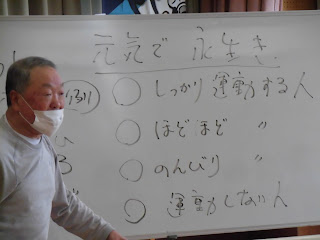 元気で 永生き
ふり
○ しっかり運動する人
○ ほどほど 〃
○ のんびり 〃
○ 運動しない人